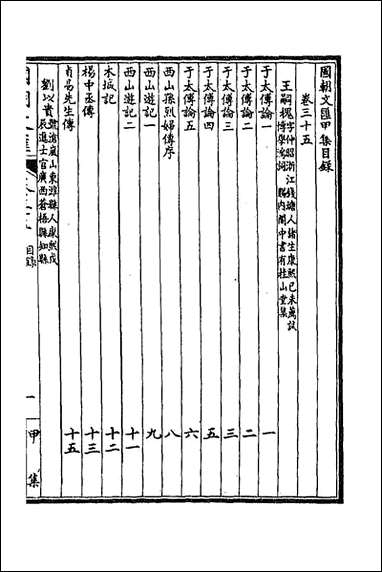 國朝文匯甲集目錄
卷三十五
王嗣槐字仲昭浙江錢塘人諸生康熙己未薦試
博學鴻詞賜內閣中書有桂山堂集
于太傅論一 一
于太傅論二 二
于太傅論三 三
于太傅論四 五
于太傅論五 六
西山孫烈婦傳序 八
西山遊記一 九
西山遊記二 十一
木瘿記 十二
楊中丞傳 十三
貞易先生傳 十五
劉以貴號滄嵐山東濰縣人康熙戊
辰進士官廣西蒼梧縣知縣
目錄
一
甲集